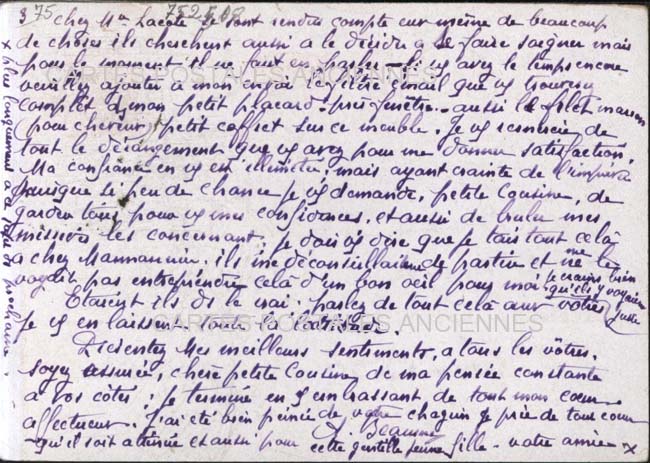 3 75 752508
chez Mm Lacote se sont rendus compte eux même de beaucoup
de choses ils cherchent aussi a le décider a se faire soigner mais
pour le moment il ne faut en parler. Si vs avez le temps encore
veuillez ajouter à mon envoi le filtre émail que vs trouverez
complet ds mon petit placard. près fenêtre. aussi le filet marron
(pour cheveux) petit coffret sur ce meuble. Je vs remercie de
tout le dérangement que vs avez pour me donner satisfaction.
Ma confiance en vs est illimitée, mais ayant crainte de
puisque si peu de chance je vs demande, petite Cousine, de
garder tous pour vs mes confidences, et aussi de bruler mes
missives les concernant. je dois vs dire que je tais tout celà
a chez Mannanun. ils me déconseillaient de partir et même ne le
voyait pas entreprendre celà d'un bon oeil pour moi je crains bien
qu'ils y voyaient juste
Etaient ils ds le vrai. parlez de tout celà aux vôtres
Je vs en laissent toute la
CARTES POSTALES ANCIENNES
CARTES POSTALES ANCIENNES
Présentez mes meilleurs sentiments, a tous les vôtres.
soyez assurée, chère petite Cousine de ma pensée constante
a vos côtés; je termine en vs embrassant de tout mon coeur
affectueux. J'ai été bien peinée de votre chagrin je prie de tout coeur
qu'il soit atténué et aussi pour cette gentille jeune fille. votre amie x
A. Beaume
x plus longuement a ce sujet ds prochaine.